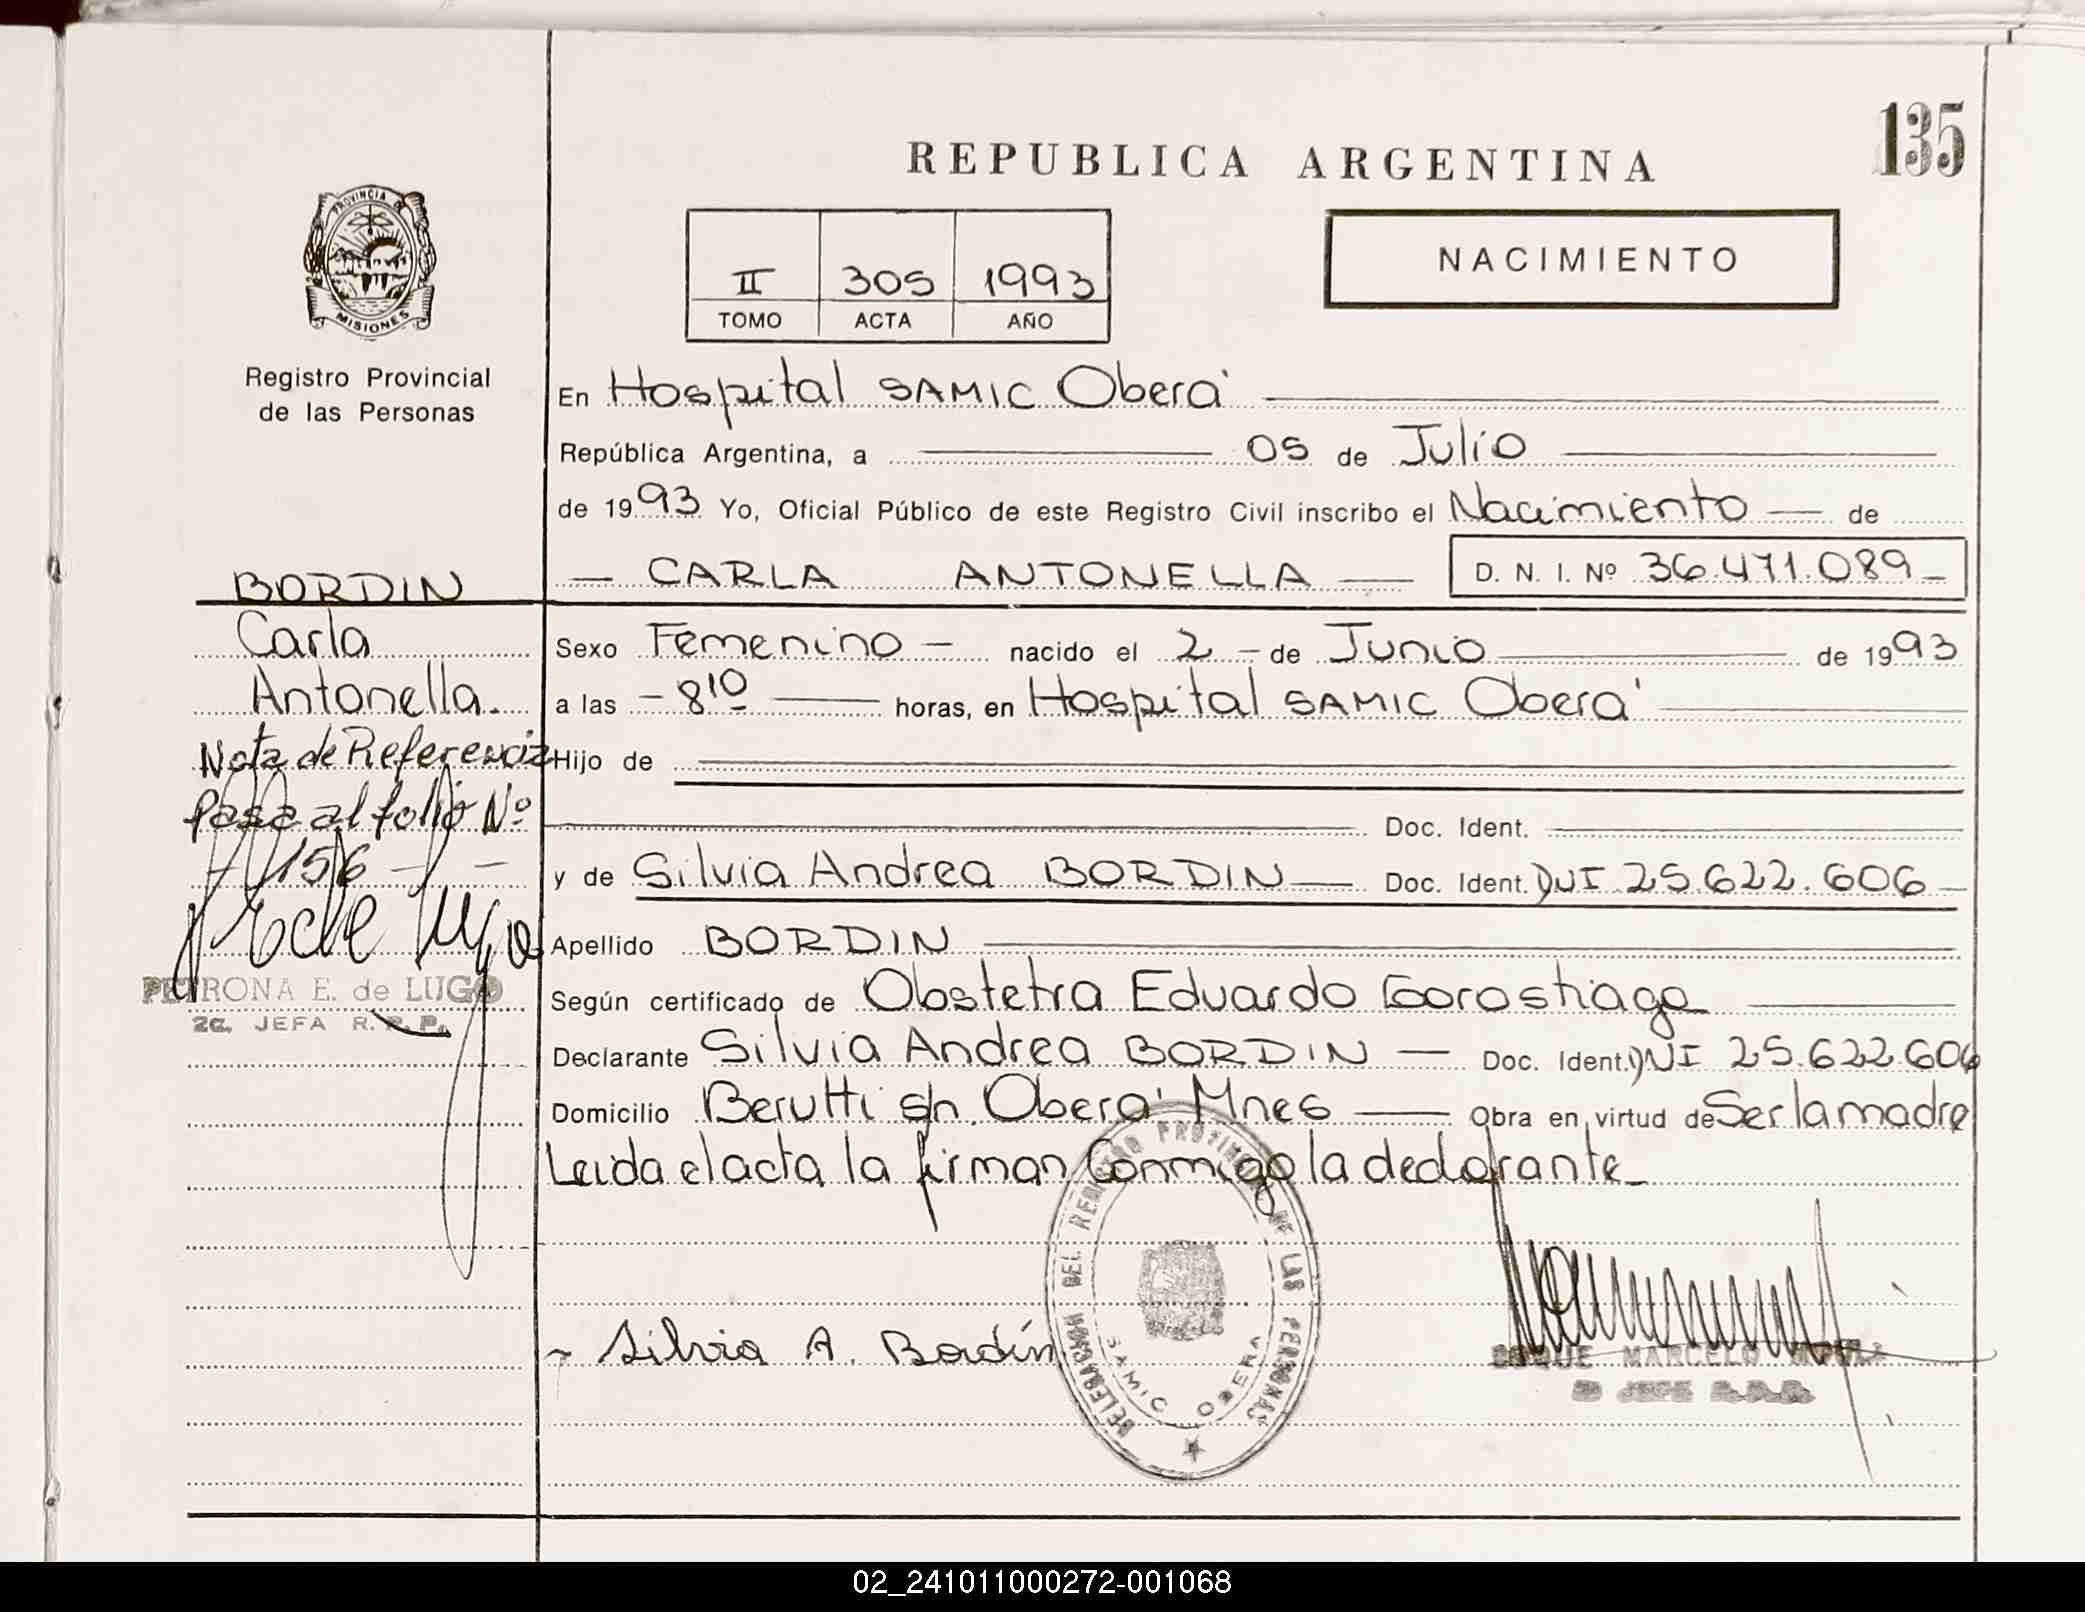 135
REPUBLICA ARGENTINA
PROVINCIA DE
MISIONES
Registro Provincial
de las Personas
II 305 1993
TOMO ACTA AÑO
NACIMIENTO
En Hospital SAMIC Oberá
República Argentina, a 05 de Julio
de 1993 Yo, Oficial Público de este Registro Civil inscribo el Nacimiento — de
— CARLA ANTONELLA — D. N. I. Nº 36.471.089 -
BORDIN
Carla
Antonella.
Nota de Referencia
Pasa al folio Nº
156 -
PETRONA E. de LUGO
2a. JEFA R. P. P.
Sexo Femenino - nacido el 2 - de Junio de 1993
a las - 8 10 — horas, en Hospital SAMIC Oberá
Hijo de
Doc. Ident.
y de Silvia Andrea BORDIN — Doc. Ident. DNI 25.622.606 -
Apellido BORDIN
Según certificado de Obstetra Eduardo Gorostiaga
Declarante Silvia Andrea BORDIN — Doc. Ident. DNI 25.622.606
Domicilio Berutti s/n. Oberá Mnes — Obra en virtud de Ser la madre
Leida el acta la firman Conmigo la declarante -
DELEGACION DEL REGISTRO PROVINCIAL DE LAS PERSONAS
SAMIC OBERA
Silvia A. Bordín
ROQUE MARCELO
JEFE R.P.P.
02_241011000272-001068